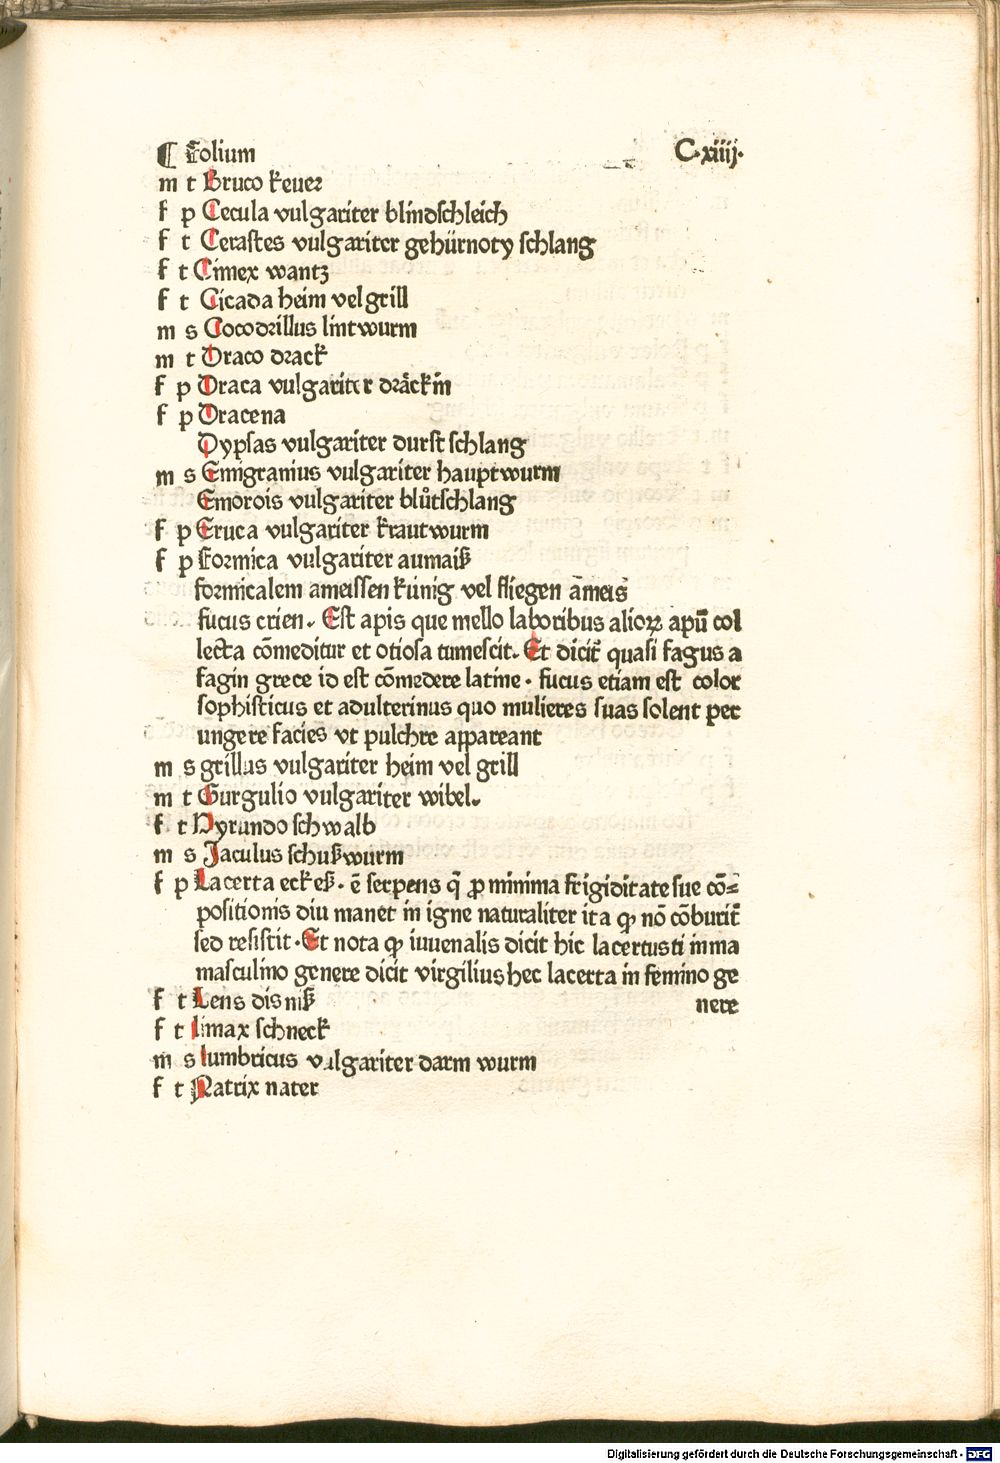 ¶ Folium C·xiiij·
m t Bruco keuer
f p Cecula vulgariter blindschleich
f t Cerastes vulgariter gehürnoty schlang
f t Cimex wantz
f t Cicada heim vel grill
m s Cocodrillus lintwurm
m t Draco drack
f p Draca vulgariter dräckin̄
f p Dracena
Dypsas vulgariter durst schlang
m s Emigranius vulgariter hauptwurm
Emorois vulgariter blůtschlang
f p Eruca vulgariter krautwurm
f p Formica vulgariter aumaiß
formicalem ameissen künig vel fliegen āmeis
fucus crien. Est apis que mello laboribus alioꝝ apū col
lecta cōmeditur et otiosa tumescit. Et dicit̄ quasi fagus a
fagin grece id est cōmedere latine · fucus etiam est color
sophisticus et adulterinus quo mulieres suas solent per
ungere facies vt pulchre appareant
m s grillus vulgariter heim vel grill
m t Gurgulio vulgariter wibel.
f t Hyrundo schwalb
m s Jaculus schußwurm
f p Lacerta eckeß · ē serpens q̄ ꝓ minima frigiditate sue cō⸗
positionis diu manet in igne naturaliter ita ꝙ nō cōburit̄
sed resistit · Et nota ꝙ iuuenalis dicit hic lacertus ti in ma
masculino genere dicit virgilius hec lacerta in femino ge
f t Lens dis niß nere
f t limax schneck
m s lumbricus vulgariter darm wurm
f t Natrix nater
Digitalisierung gefördert durch die Deutsche Forschungsgemeinschaft - DFG